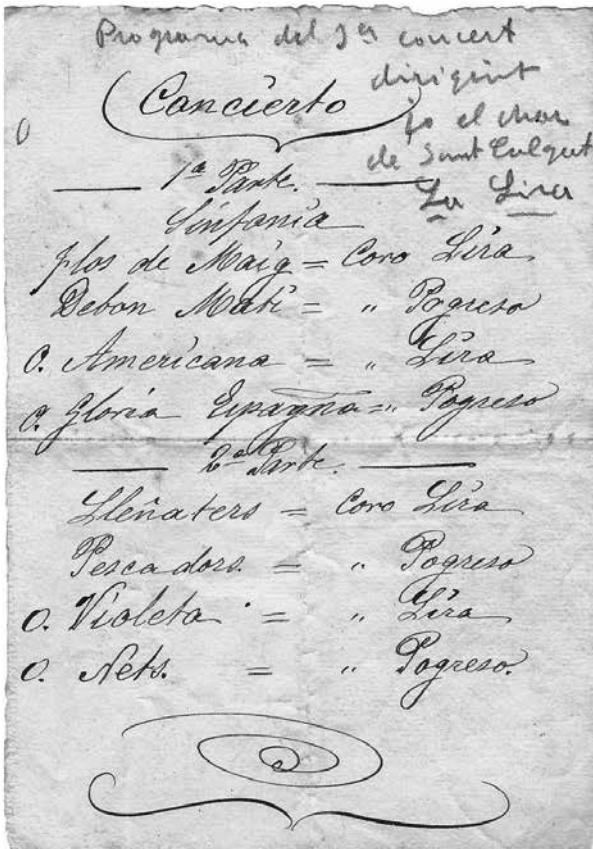 Programa del 1er concert
dirigint
Concierto
jo el chor
de Sant Culgat
La Lira
1ª Parte.
Sinfonia
Flos de Maig = Coro Lira
Debon Matí = " Pogreso
O. Americana = " Lira
O. Gloria Espagna = " Pogreso
2ª Parte.
Lleñaters = Coro Lira
Pescadors. = " Pogreso
O. Violeta = " Lira
O. Nets. = " Pogreso.